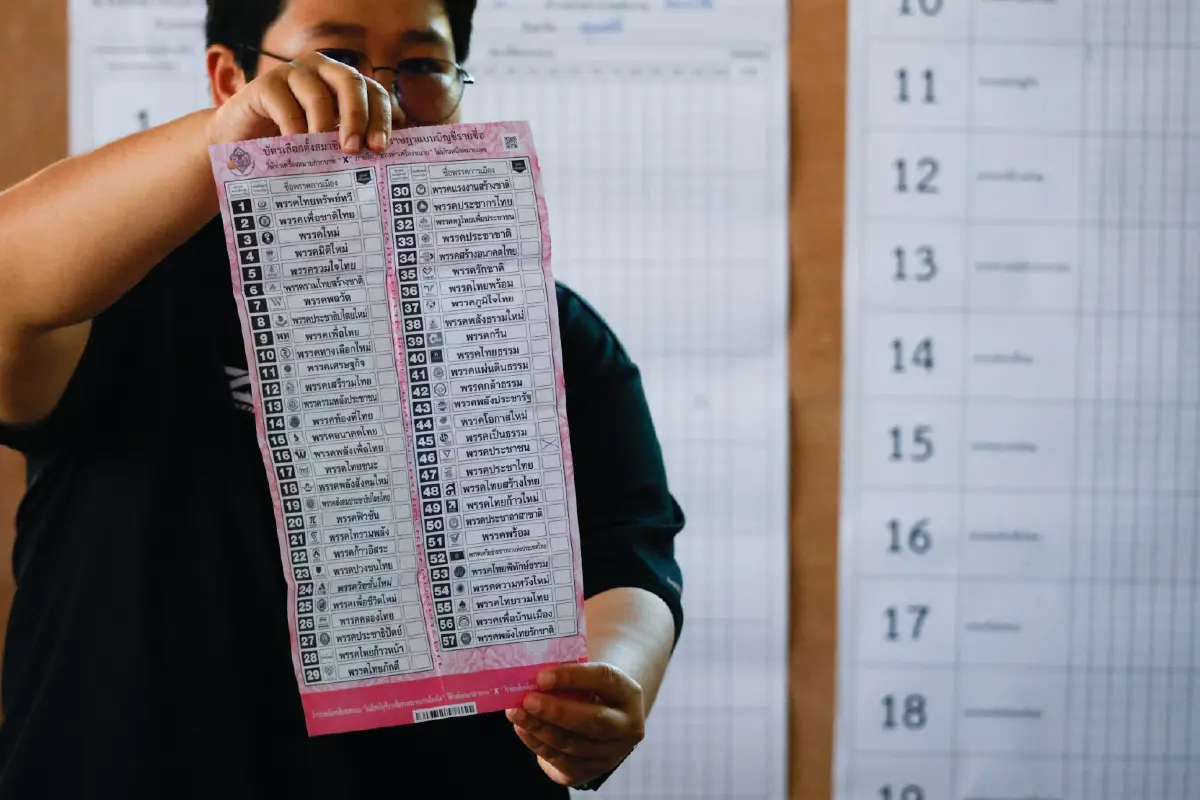 บัตรเลือกตั้งสมาชิ
าษฎรแบบบัญชีรายชื่อ
ให้ทำเครื่องหมายกากบาท "X"
ชื่อพรรคการเมือง
1 พรรคไทยทรัพย์ทวี
2 พรรคเพื่อชาติไทย
3 พรรคใหม่
4 พรรคมิติใหม่
5 พรรครวมใจไทย
6 พรรครวมไทยสร้างชาติ
7 พรรคพลวัต
8 พรรคประชาธิปไตยใหม่
9 พท พรรคเพื่อไทย
10 พรรคทางเลือกใหม่
11 พรรคเศรษฐกิจ
12 พรรคเสรีรวมไทย
13 พรรครวมพลังประชาชน
14 พรรคท้องที่ไทย
15 พรรคอนาคตไทย
16 พรรคพลังเพื่อไทย
17 พรรคไทยชนะ
18 พรรคพลังสังคมใหม่
19 พรรคสังคมประชาธิปไตยไทย
20 พรรคฟิวชัน
21 พรรคไทรวมพลัง
22 พรรคก้าวอิสระ
23 พรรคปวงชนไทย
24 พรรควิชชั่นใหม่
25 พรรคเพื่อชีวิตใหม่
26 พรรคคลองไทย
27 พรรคประชาธิปัตย์
28 พรรคไทยก้าวหน้า
29 พรรคไทยภักดี
ชื่อพรรคการเมือง
30 พรรคแรงงานสร้างชาติ
31 พรรคประชากรไทย
32 พรรคครูไทยเพื่อประชาชน
33 พรรคประชาชาติ
34 พรรคสร้างอนาคตไทย
35 พรรครักชาติ
36 พรรคไทยพร้อม
37 พรรคภูมิใจไทย
38 พรรคพลังธรรมใหม่
39 พรรคกรีน
40 พรรคไทยธรรม
41 พรรคแผ่นดินธรรม
42 พรรคกล้าธรรม
43 พรรคพลังประชารัฐ
44 พรรคโอกาสใหม่
45 พรรคเป็นธรรม
46 พรรคประชาชน
47 พรรคประชาไทย
48 พรรคไทยสร้างไทย
49 พรรคไทยก้าวใหม่
50 พรรคประชาอาสาชาติ
51 พรรคพร้อม
52 พรรคเครือข่ายชาวนาแห่งประเทศไทย
53 พรรคไทยพิทักษ์ธรรม
54 พรรคความหวังใหม่
55 พรรคไทยรวมไทย
56 พรรคเพื่อบ้านเมือง
57 พรรคพลังไทยรักชาติ
1
10
11
12
13
14
15
16
17
18
19